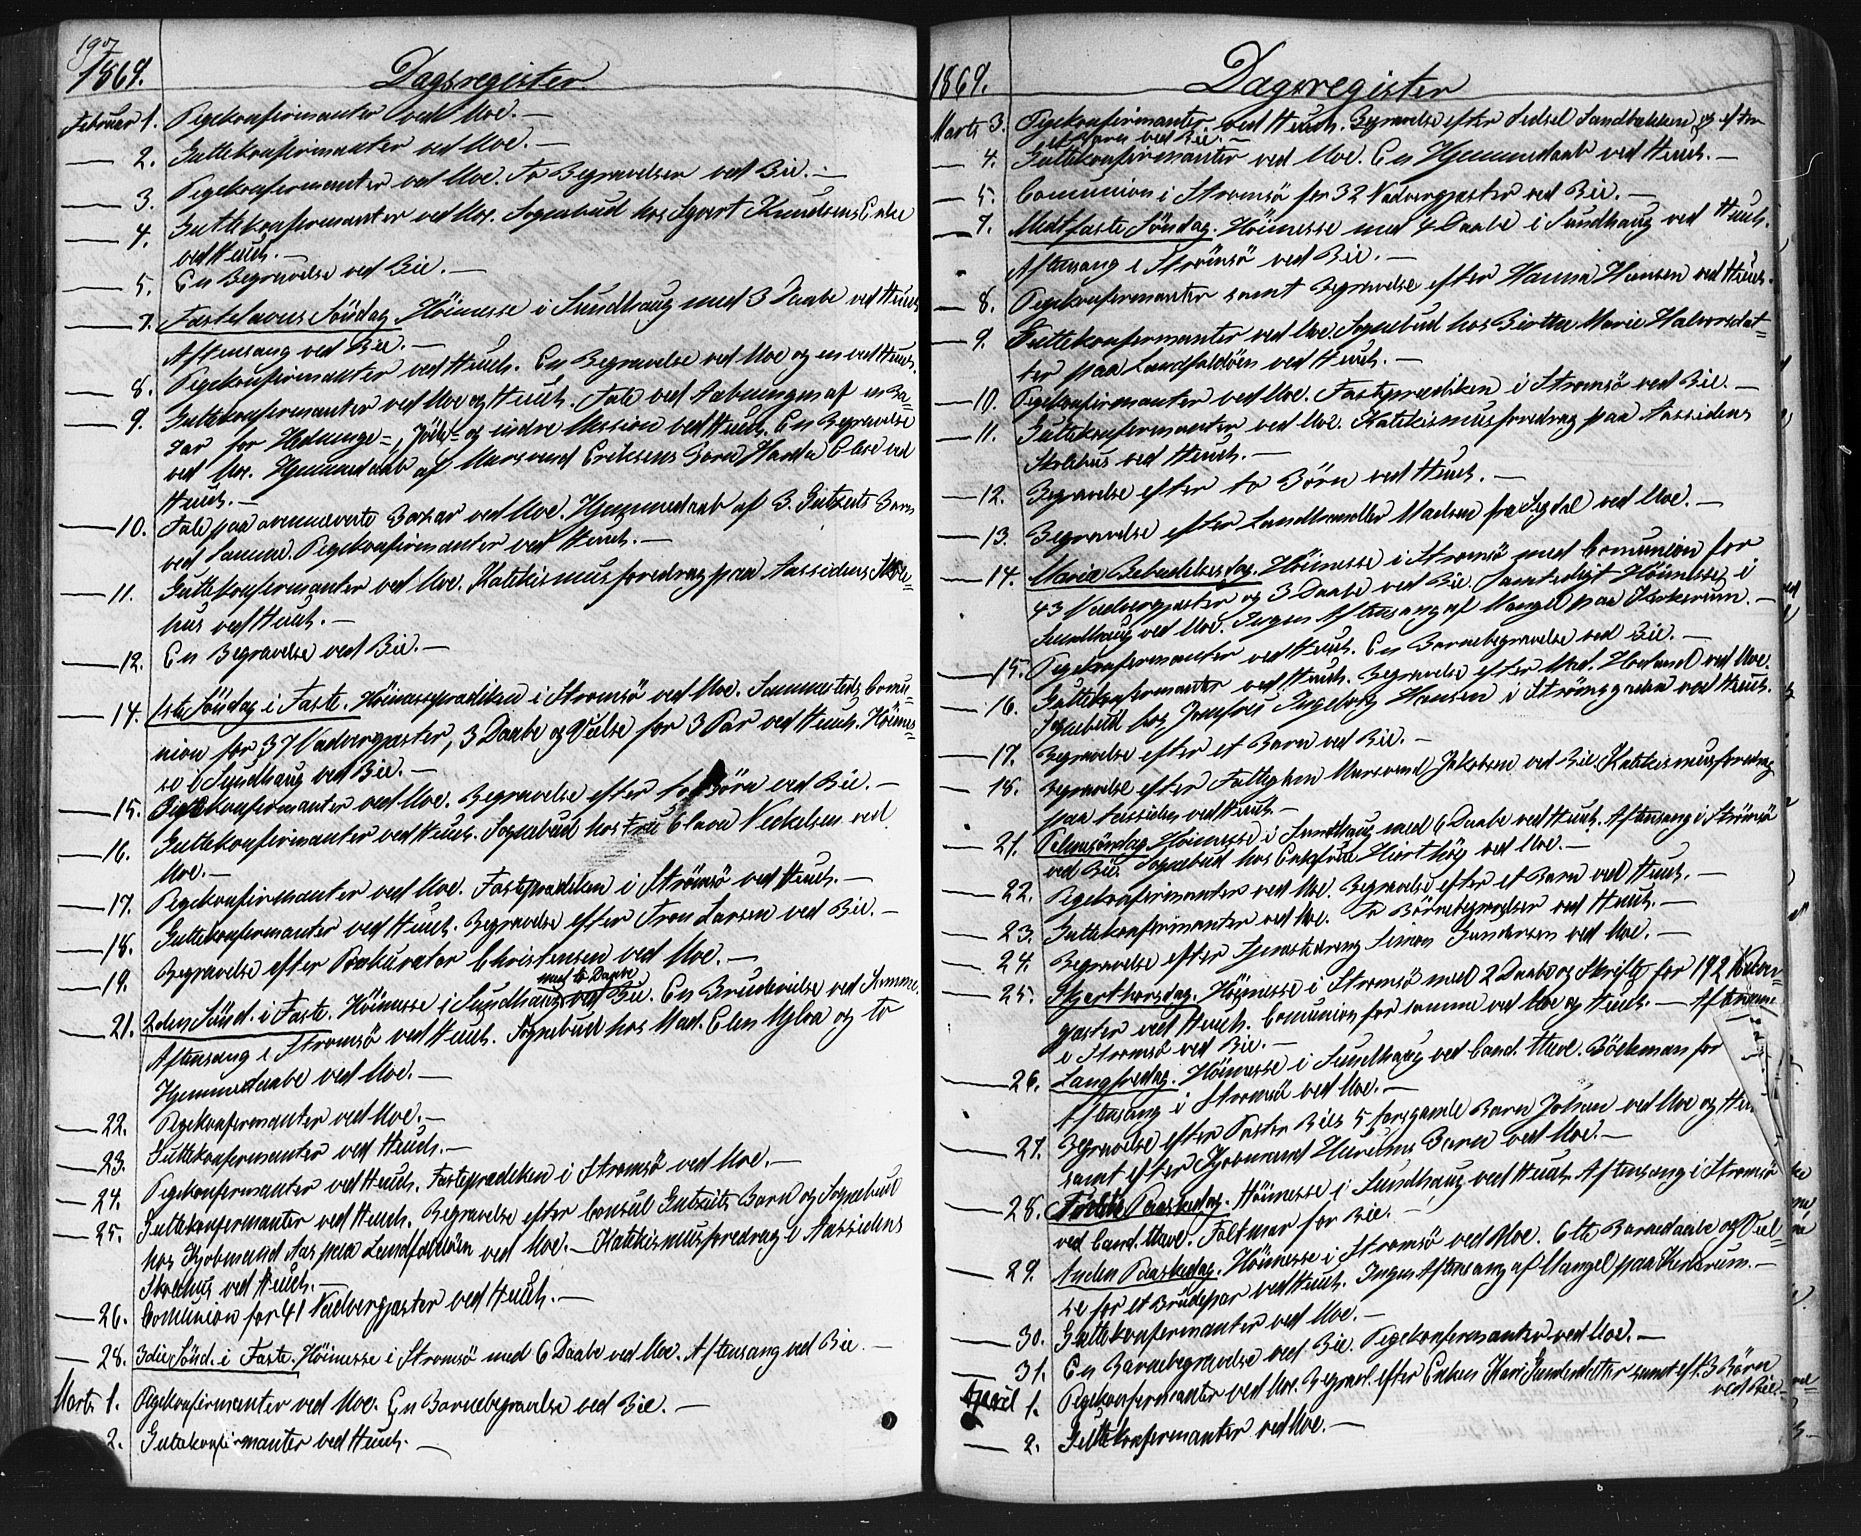 190
1869. Dagsregister
Februar 1. Pigekonfirmanter ved Moe. —
— 2. Guttekonfirmanter ved Moe. —
— 3. Pigekonfirmanter ved Moe. To Begravelser ved Bie. —
— 4. Guttekonfirmanter ved Moe. Sognebud hos Sjvert Knudsens Enke
ved Heuch. —
— 5. En Begravelse ved Bie. —
— 7. Fastelavns Söndag Höimesse i Sundhaug med 3 Daabe ved Heuch
Aftensang ved Bie. —
— 8. Pigekonfirmanter ved Heuch. En Begravelse ved Moe og en ved Heuch.
— 9. Guttekonfirmanter ved Moe og Heuch. Tale ved Aabningen af en Ba=
zar for Hedninge=, Jöde= og indre Mission ved Heuch. En Begravelse
ved Moe. Hjemmedaab af Marsvend Eriksens Barn Hanna Elise ved
Heuch. —
— 10. Tale paa ovennævnte Bazar ved Moe. Hjemmedaab af B. Gutzeits Barn
ved Samme. Pigekonfirmanter ved Heuch. —
— 11. Guttekonfirmanter ved Moe. Katekismusforedrag paa Aassidens Skole=
hus ved Heuch. —
— 12. En Begravelse ved Bie. —
— 14. 1ste Söndag i Faste. Höimesseprædiken i Strömsö ved Moe. Sammesteds Comu=
nion for 37 Nadvergjæster, 3 Daabe og Vielse for 3 Par ved Heuch. Höimes=
se i Sundhaug ved Bie. —
— 15. Pigekonfirmanter ved Moe. Begravelse efter to Börn ved Bie. —
— 16. Guttekonfirmanter ved Heuch. Sognebud hos Olava Nickelsen ved
Moe. —
— 17. Pigekonfirmanter ved Moe. Fasteprædiken i Strömsö ved Heuch. —
— 18. Guttekonfirmanter ved Heuch. Begravelse efter Tron Larsen ved Bie. —
— 19. Begravelse efter Prokurator Christensen ved Moe. —
med to Daabe
— 21. 2den Sönd. i Faste. Höimesse i Sundhaug ved Bie. En Brudevielse ved Samme.
Aftensang i Strömsö ved Heuch. Sognebud hos Mad. Elen og to
Hjemmedaabe ved Moe. —
— 22. Pigekonfirmanter ved Moe. —
— 23. Guttekonfirmanter ved Heuch. —
— 24. Pigekonfirmanter ved Heuch. Fasteprædiken i Strömsö ved Moe. —
— 25. Guttekonfirmanter ved Heuch. Begravelse efter Consul Gutzeits Barn og Sognebud
hos Kjöbmand Aas paa Landfaldöen ved Moe. — Katekismusforedrag i Aassidens
Skolehus ved Heuch. —
— 26. Comunion for 41 Nadvergjæster ved Heuch. —
— 28. 3die Sönd. i Faste. Höimesse i Strömsö med 6 Daabe ved Moe. Aftensang ved Bie. —
Marts 1. Pigekonfirmanter ved Moe. En Barnebegravelse ved Bie. —
2. Guttekonfirmanter ved Heuch. —
1869. Dagsregister
Marts 3. Pigekonfirmanter ved Heuch. Begravelse efter Sidsel Sandbakken og efter
et Barn ved Bie. —
— 4. Guttekonfirmanter ved Moe. En Hjemmedaab ved Heuch. —
— 5. Communion i Strömsö for 32 Nadvergjæster ved Bie. —
— 7. Midtfaste Söndag. Höimesse med 4 Daabe i Sundhaug ved Heuch.
Aftensang i Strömsö ved Bie. —
— 8. Pigekonfirmanter samt Begravelse efter Hanna Hansen ved Heuch.
— 9. Guttekonfirmanter ved Moe. Sognebud hos Birthe Marie Halvorsdat=
ter paa Landfaldöen ved Heuch. —
— 10. Pigekonfirmanter ved Moe. Fasteprædiken i Strömsö ved Bie. —
— 11. Guttekonfirmanter ved Moe. Katekismusforedrag paa Aassidens
Skolehus ved Heuch. —
— 12. Begravelse efter to Börn ved Heuch. —
— 13. Begravelse efter Landhandler Madsen fra Sigdal ved Moe. —
— 14. Mariæ Bebudelsesdag. Höimesse i Strömsö med Comunion for
43 Nadvergjæster og 3 Daabe ved Bie. Samtidigt Höimesse i
Sundhaug ved Moe. Ingen Aftensang af Mangel paa Kirkerum. —
— 15. Pigekonfirmanter ved Heuch. En Barnebegravelse ved Bie. —
— 16. Guttekonfirmanter ved Heuch. Begravelse efter Mad. ved Moe.
Sognebud hos Jomfru Ingeborg Hansen i Strömsgaden ved Heuch.
— 17. Begravelse efter et Barn ved Bie. —
— 18. Begravelse efter Fattiglem Marsvend Jakobsen ved Bie. Katekismusforedrag
paa Aassiden ved Heuch. —
— 21. Palmesöndag. Höimesse i Sundhaug med 6 Daabe ved Heuch. Aftensang i Strömsö
ved Bie. Sognebud hos Enkefrue ved Moe. —
— 22. Pigekonfirmanter ved Moe. Begravelse efter et Barn ved Heuch. —
— 23. Guttekonfirmanter ved Moe. To Börnebegravelser ved Heuch. —
— 24. Begravelse efter Tjenestedreng Simon Gundersen ved Moe. —
— 25. Skjærthorsdag. Höimesse i Strömsö med 2 Daabe og Skrifte for 192 Nadver=
gjæster ved Heuch. Comunion for samme ved Moe og Heuch. — Aftensang
i Strömsö ved Bie. —
— 26. Langfredag. Höimesse i Sundhaug ved Cand. theol. Böckman for
Aftensang i Strömsö ved Moe. —
— 27. Begravelse efter Pastor Bies 5 Aarsgamle Barn Johan ved Moe og
samt efter Kjöbmand Hurums Barn ved Moe. —
— 28. Förste Paaskedag. Höimesse i Sundhaug ved Heuch. Aftensang i Strömsö
ved Cand. theol. for Bie. —
— 29. Anden Paaskedag. Höimesse i Strömsö ved Moe. 6 Barnedaabe og Viel=
se for et Brudepar ved Heuch. Ingen Aftensang af Mangel paa Kirkerum. —
— 30. Guttekonfirmanter ved Moe. —
— 31. En Barnebegravelse ved Bie. Pigekonfirmanter ved Moe. —
April 1. Pigekonfirmanter ved Moe. Begravel. efter Enken Kari Gundersdatter samt eft. 3 Börn
ved Bie —
— 2. Guttekonfirmanter ved Moe. —